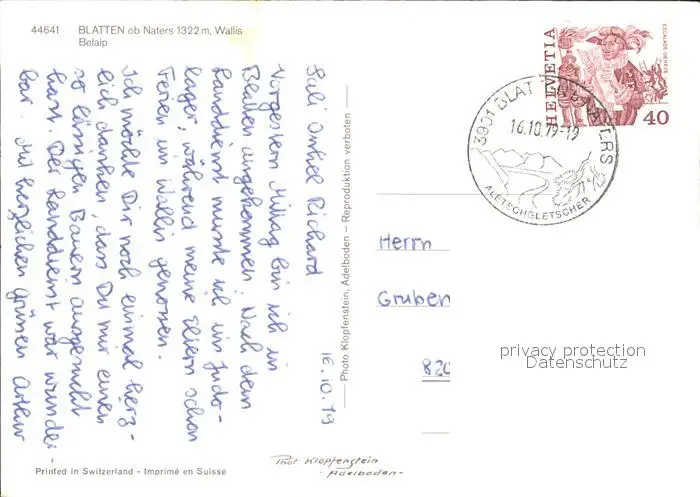 44641 BLATTEN ob Naters 1322 m, Wallis
Belalp
HELVETIA
ESCALADE GENÈVE
40
3901 BLATTEN B. NATERS
16.10.79-19
ALETSCHGLETSCHER
16.10.79
Sali Onkel Richard
Vorgestern Mittag bin ich in
Blatten angekommen. Nach dem
Landdienst musste ich ins Judo-
lager, während meine Eltern schon
Ferien im Wallis genossen.
Ich möchte Dir noch einmal herz-
lich danken, dass Du mir einen
so lässigen Bauern ausgesucht
hast. Der Landdienst war wunder-
bar. Mit herzlichen Grüssen Arthur
Photo Klopfenstein, Adelboden — Reproduktion verboten
Herrn
Gruben
820
privacy protection
Datenschutz
Phot. Klopfenstein
- Adelboden -
Printed in Switzerland - Imprimé en Suisse